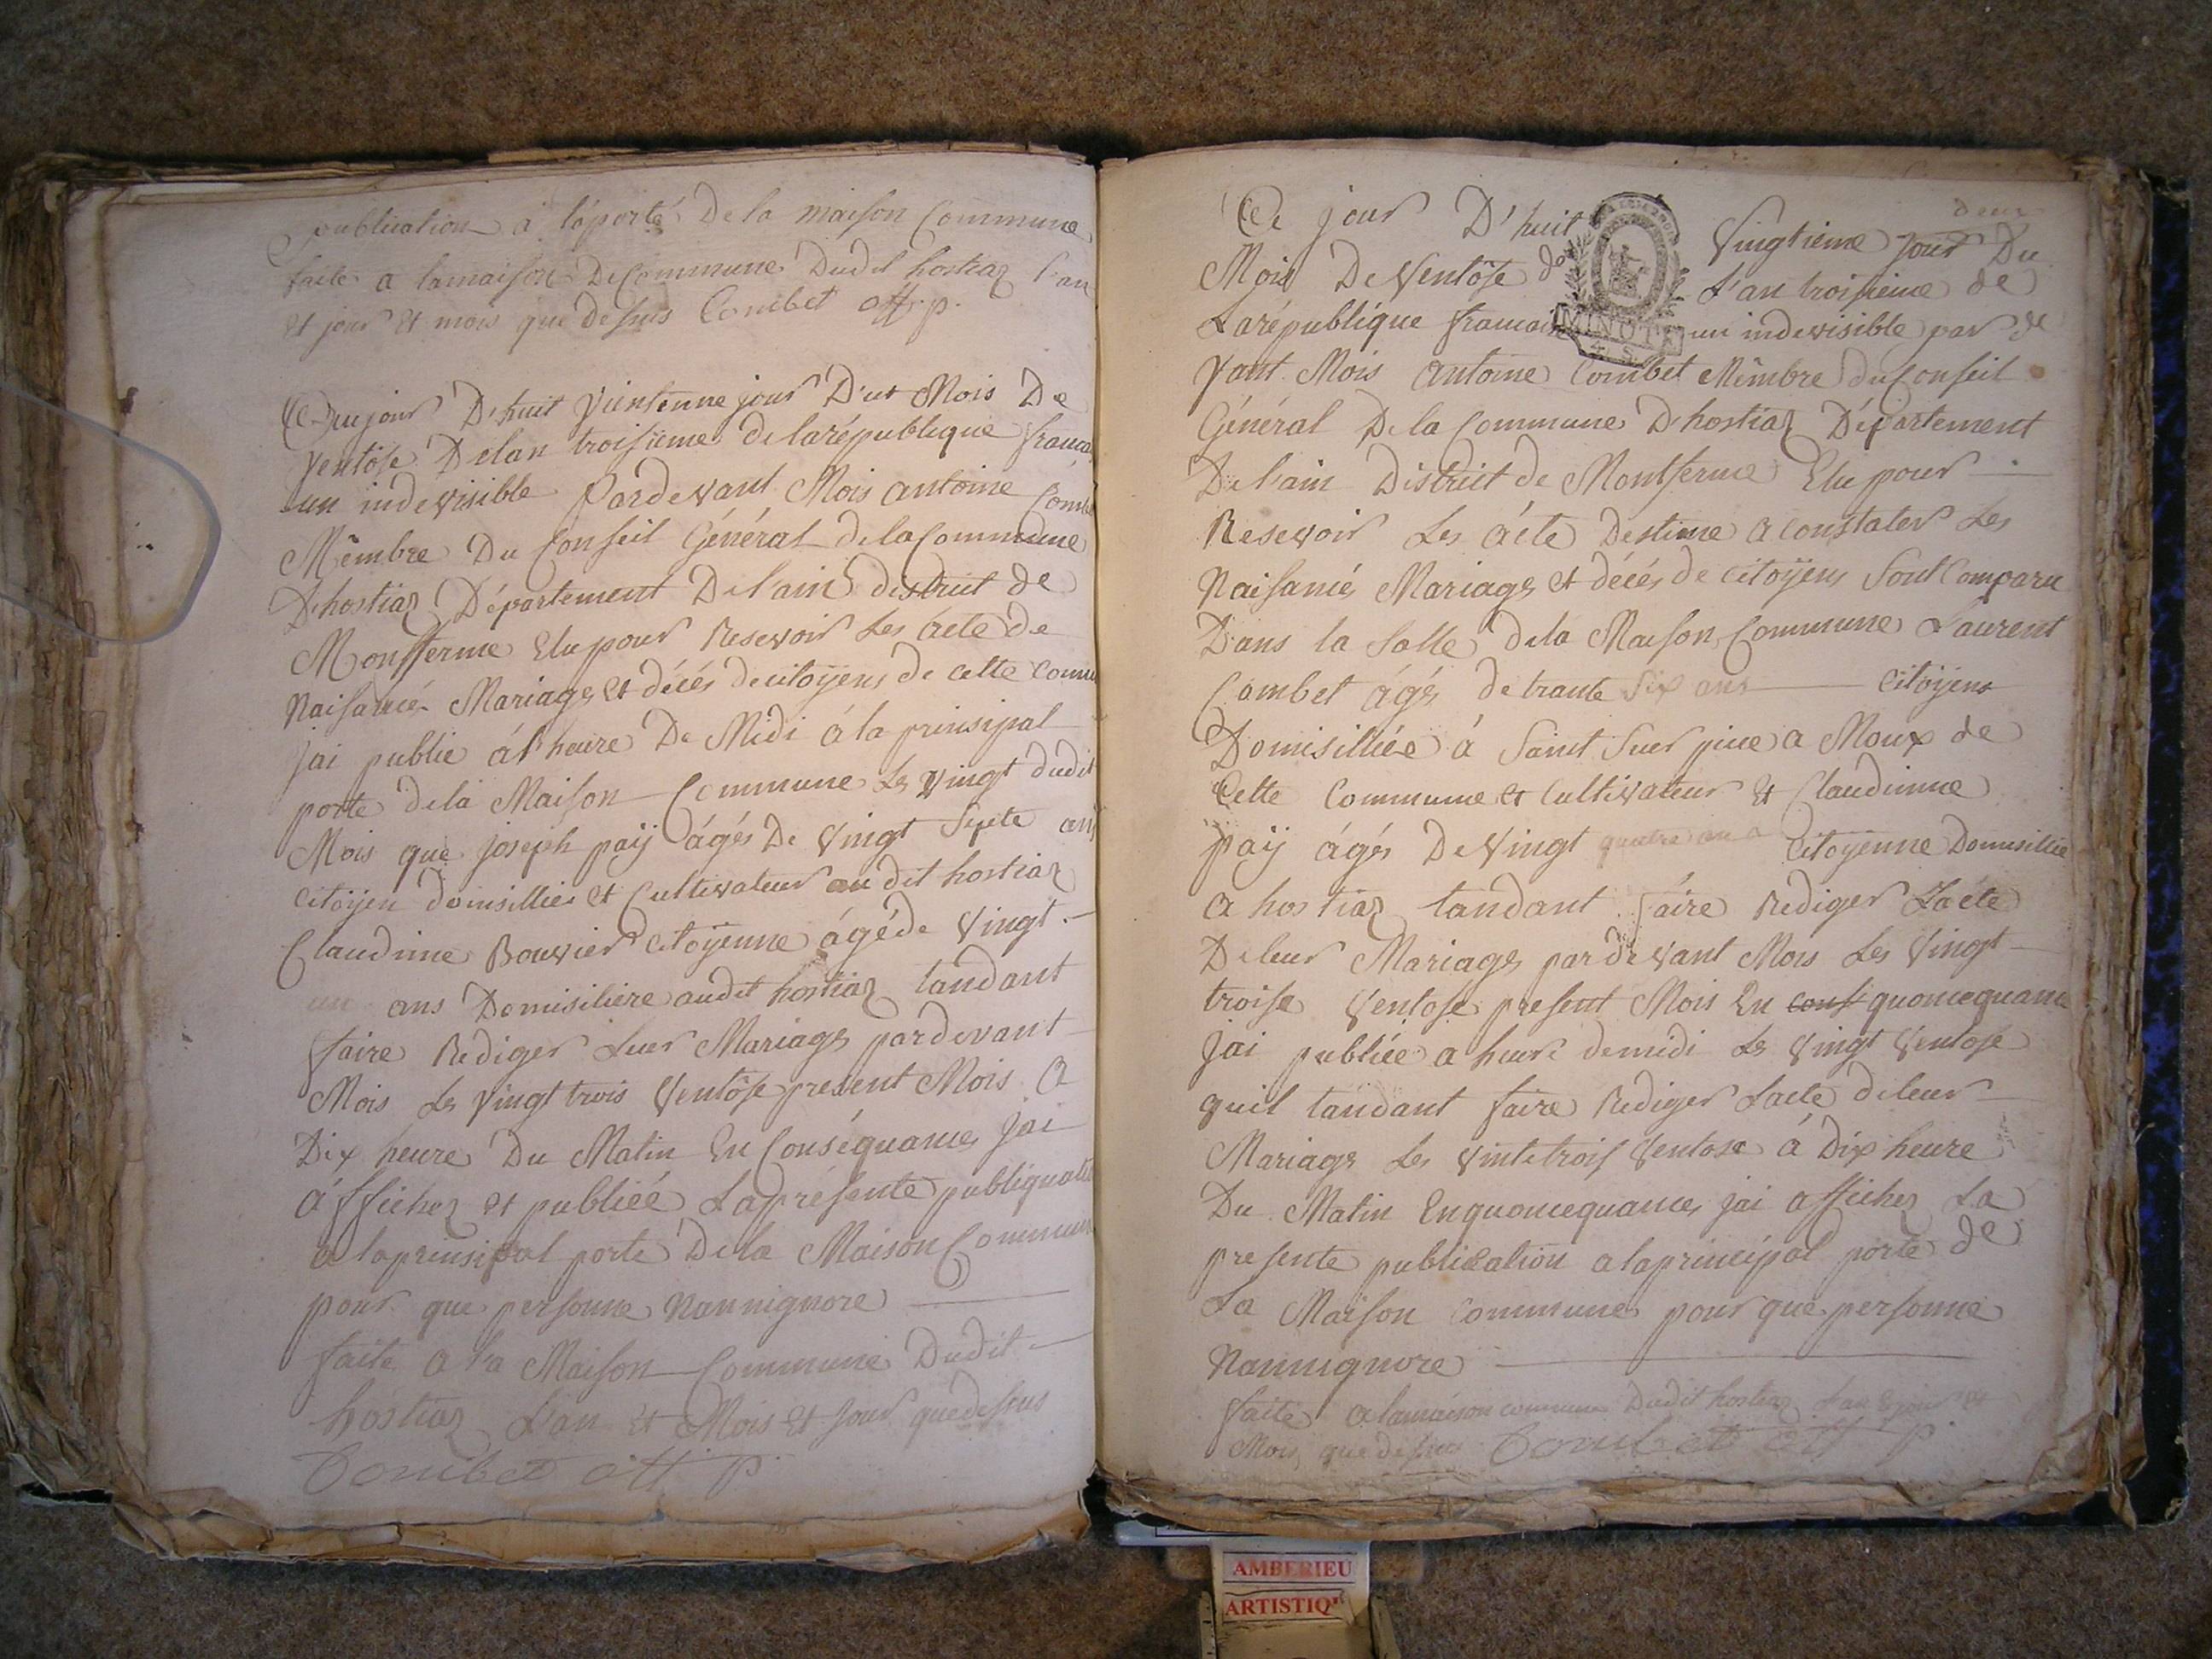 publication a laporte De la maison Commune
faite a lamaison De Commune Dudit hostiaz l'an
et jour et mois que desus Combet off. p.
Ce aujour D'huit Vientenne jour D'ut Mois De
Ventôse Delan troisieme de larépublique franca
un indevisible Pardevant Mois antoine Combe
Mêmbre Du Conseil Général delaCommune
Dhostiaz Département Del'ain district de
Montferme Elu pour Resevoir Les àcte de
Naisancé Mariages et décés de citoÿens de cette Comu
jai publie ál'heure De Midi á la prinsipal
porte dela Maison Commune Les vingt dudit
Mois que joseph paÿ ágés De Vingt Septe ans
citoÿen domisilliés et Cultivateur au dit hostiaz
Claudine Bouvier citoÿenne ágéde Vingt
un ans Domisiliere audit hostiaz tandant
faire Rediger Leur Mariages pardevant
Mois Les Vingt trois Ventôse present Mois a
Dix heure Du Matin En Conséquances jai
áffichez et publiéé Laprésente publiquati
a laprinsipal porte Dela Maison Commun
pour que personne Nannignore
faite a la Maison Commune Dudit
hostiaz L'an Et Mois Et jour quedesus
Combet off P.
deux
Ce jour D'huit Vingtieme jour Du
Mois De Ventôse de L'an troisieme de
Larépublique francai un indevisible par de
MINUTE
4. S.
Vant Mois antoine Combet Mêmbre du Conseil
Général De la Commune D'hostiaz Département
Del'ain District de Montferme Elu pour
Resevoir Les àcte Destime a constater Les
Naisancé Mariages et décés de citoÿens Sont Comparu
Dans la Salle dela Maison Commune Laurent
Combet ágés de trante Six ans citoÿens
Domisilliée á Saint Suer a Moux de
Cette Commune et Cultivateur et Claudinne
paÿ ágés DeVingt quatre ans citoÿenne Domisillie
a hostiaz tandant fáire Rediger Lácte
Deleur Mariages pardevant Mois Les Vingt
troise Ventose present Mois En cons quoncequance
jai publiée a heure demidi Les Vingt Ventose
quil tandant faire Rediger Lacte deleur
Mariages Les Vintetrois Ventose á Dix heure
Du Matin Enquoncequances jai affichez La
presente publication alaprincipal porte de
La Maison Commune pour que personne
Nannignore
faite alamaison commune Dudit hostiaz Lan Et jour et
Mois que desus Combet off P.
AMBERIEU
ARTISTIQ